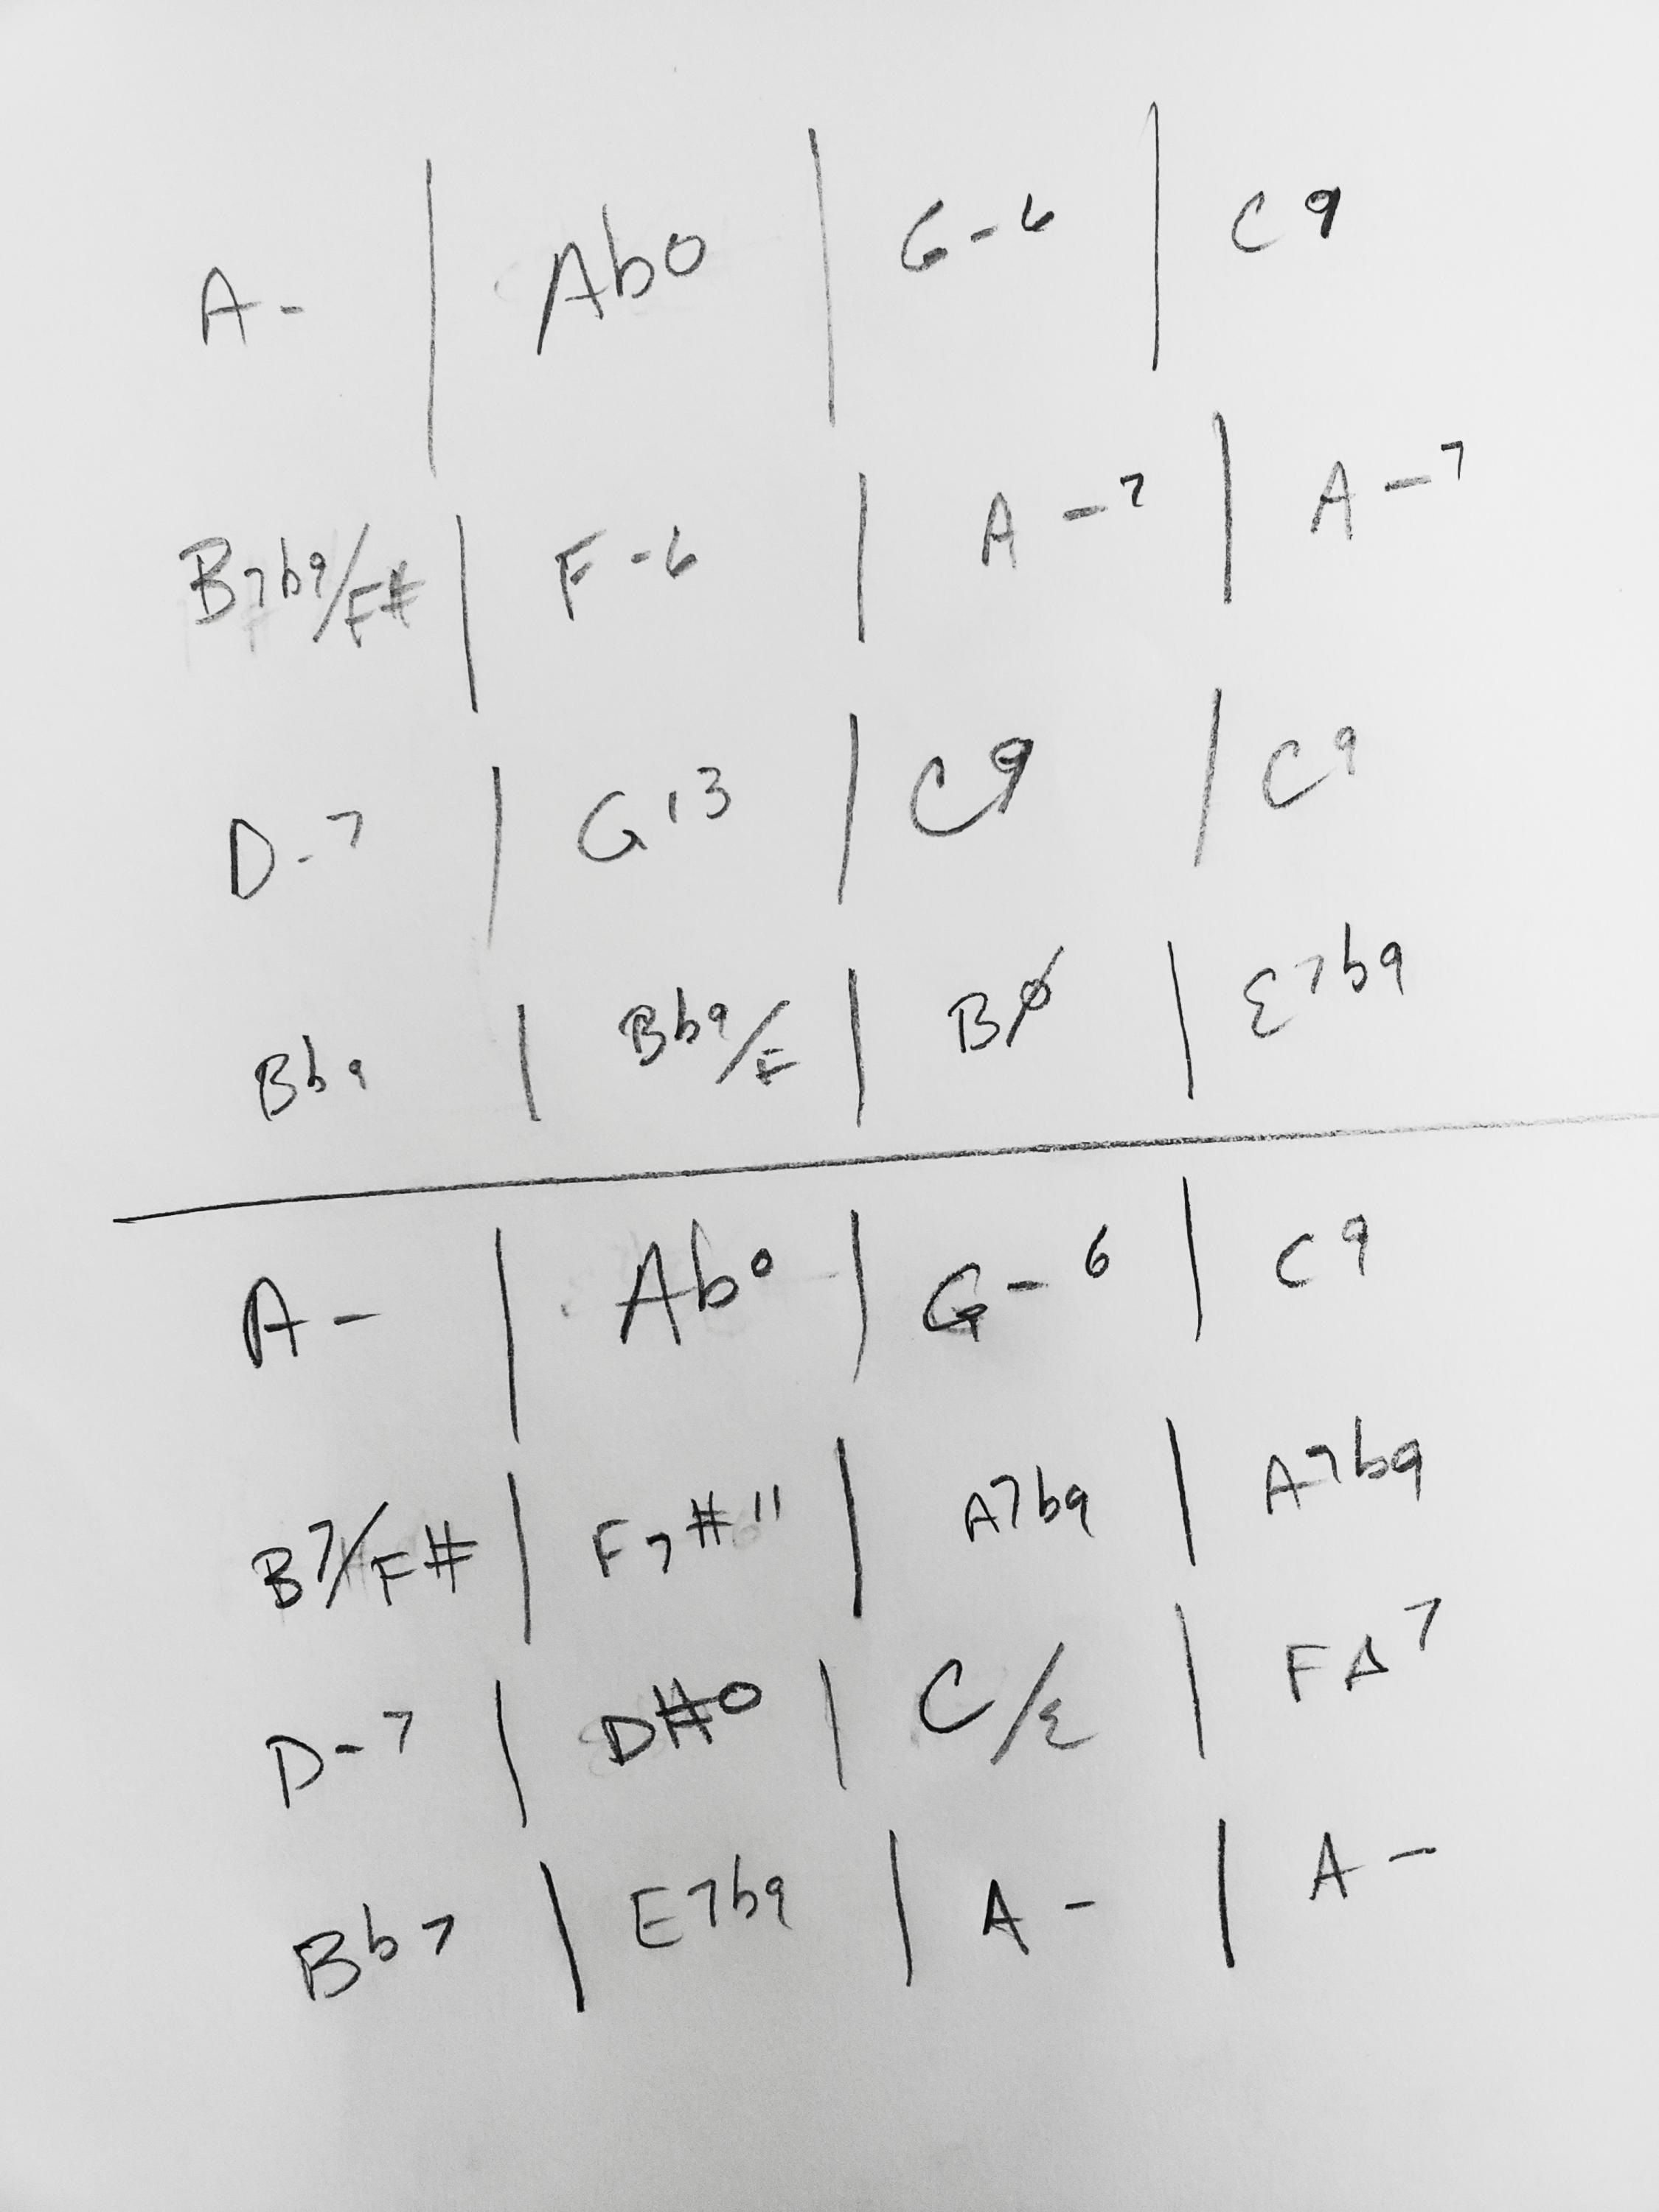 A- | Abo | G-6 | C9
B7b9/F# | F-6 | A-7 | A-7
D-7 | G13 | C9 | C9
Bb9 | Bb9/F | Bø | E7b9
A- | Abo | G-6 | C9
B7/F# | F7#11 | A7b9 | A7b9
D-7 | D#o | C/E | FΔ7
Bb7 | E7b9 | A- | A-